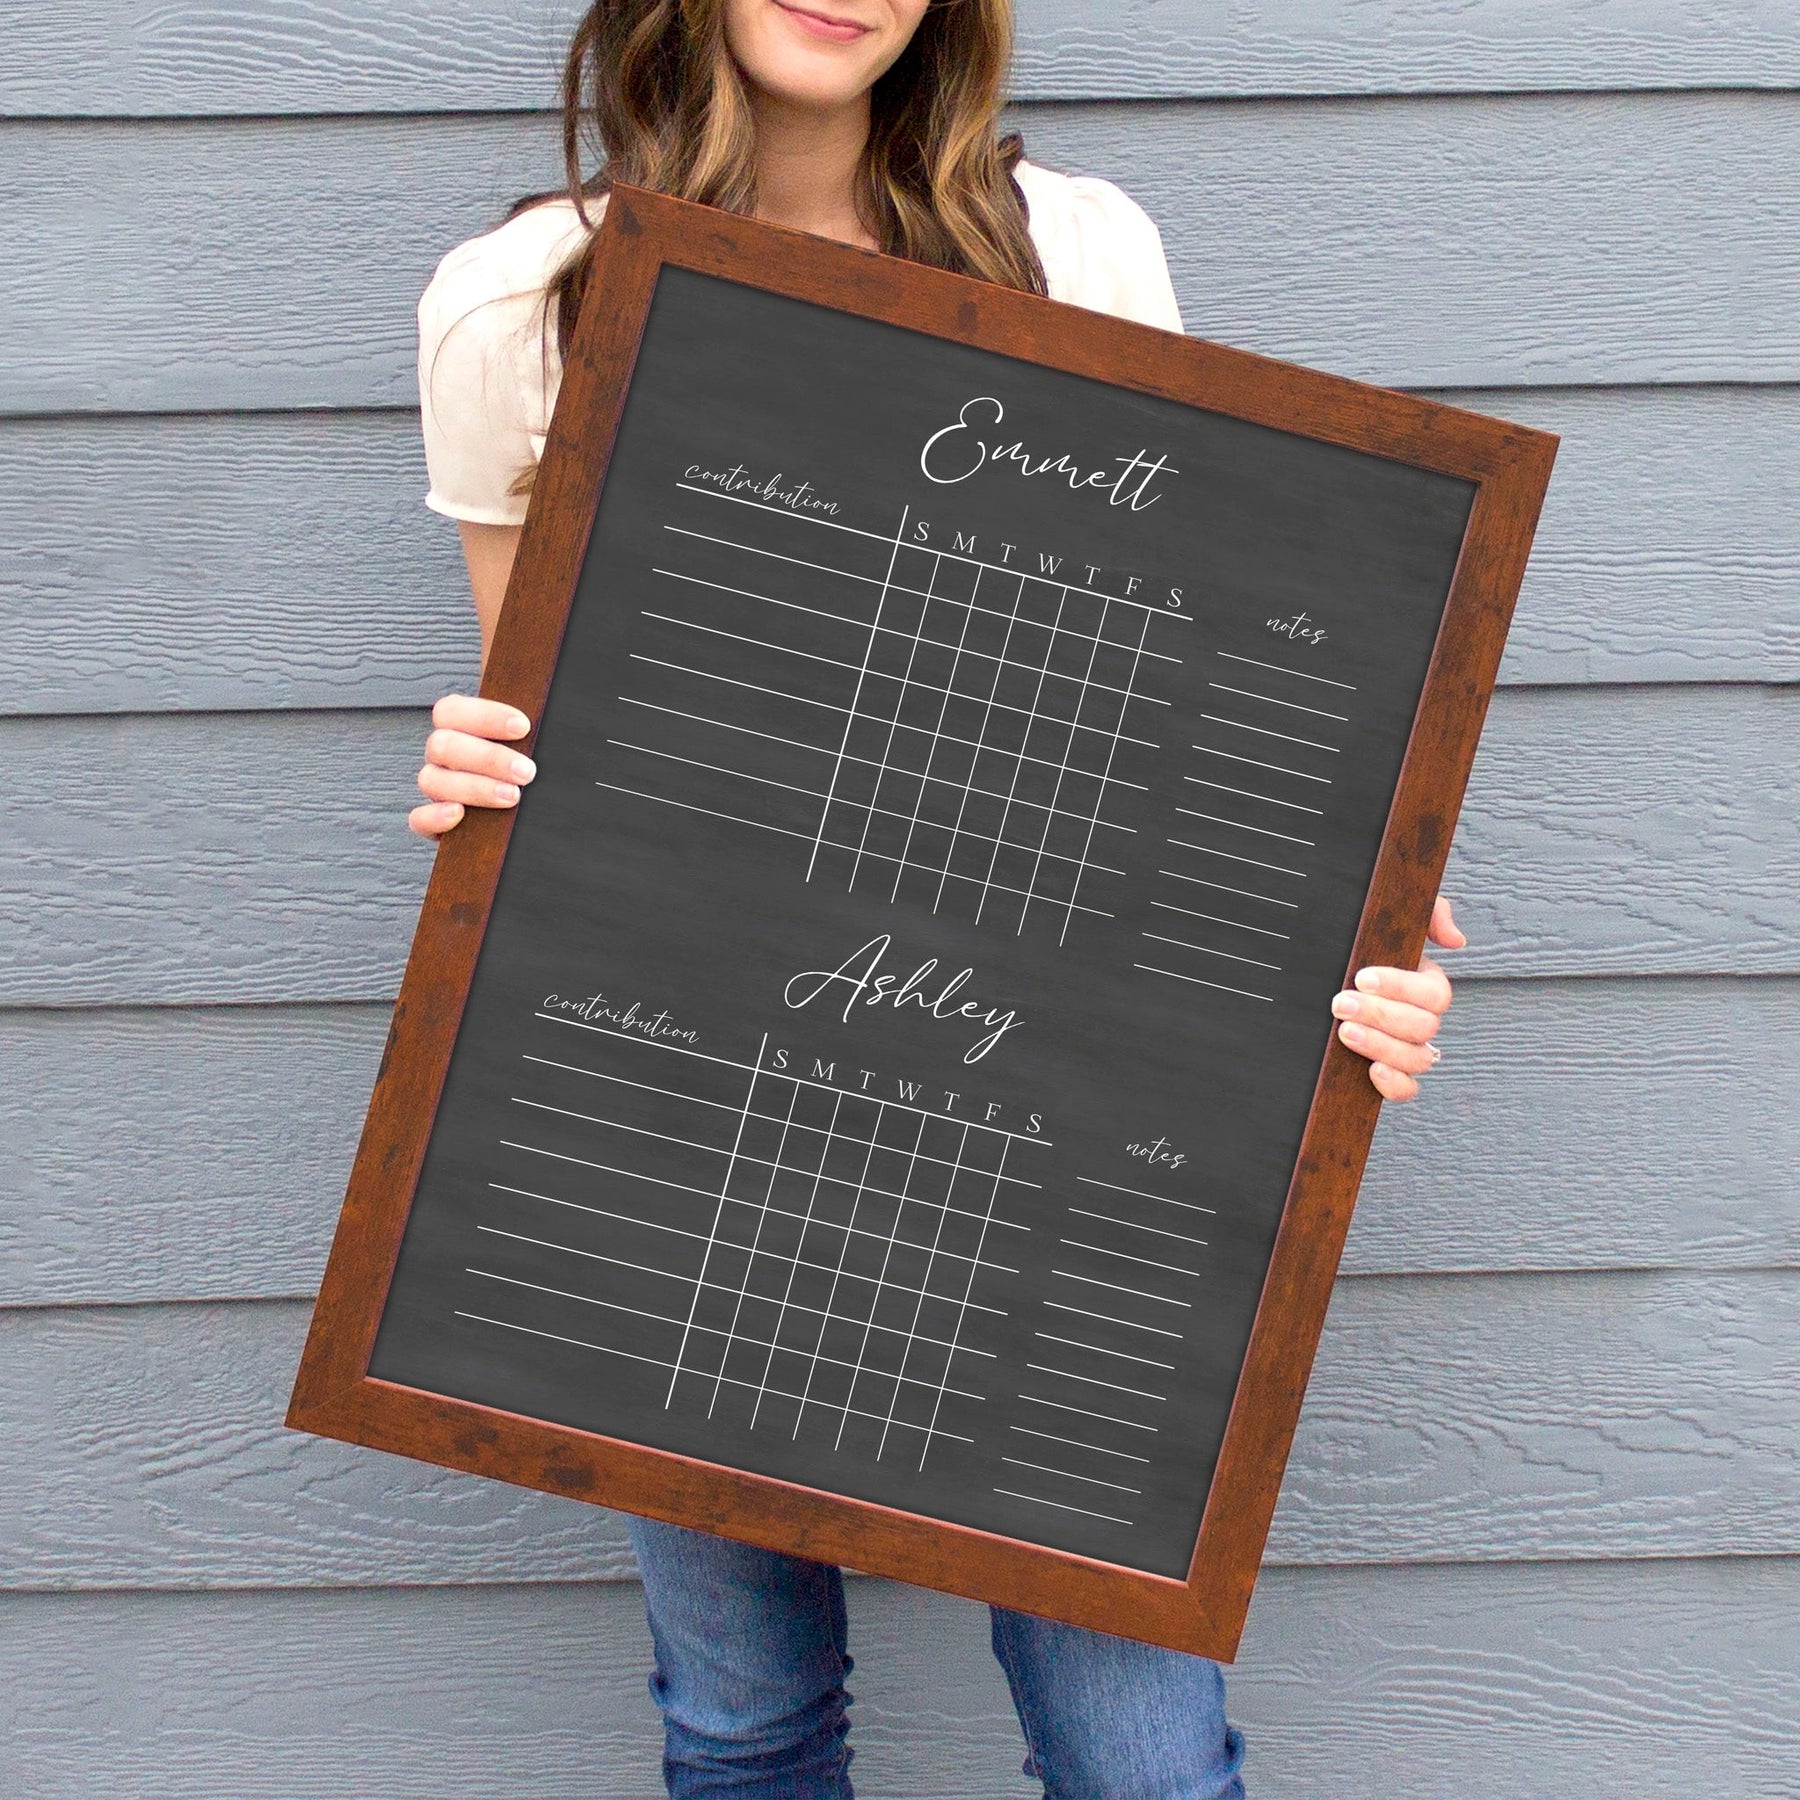 Emmett
contribution
S M T W T F S
notes
Ashley
contribution
S M T W T F S
notes